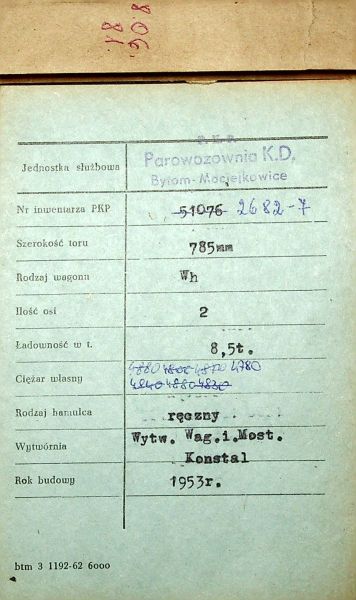 8.06.8
Jednostka służbowa P.K.P.
Parowozownia K.D.
Bytom-Maciejkowice
Nr inwentarza PKP 51076 2682-7
Szerokość toru 785mm
Rodzaj wagonu Wh
Ilość osi 2
Ładowność w t. 8,5t.
Ciężar własny 4880 4800 4810 4780
4840 4880 4830
Rodzaj hamulca ręczny
Wytwórnia Wytw. Wag.i.Most.
Konstal
Rok budowy 1953r.
btm 3 1192-62 6000